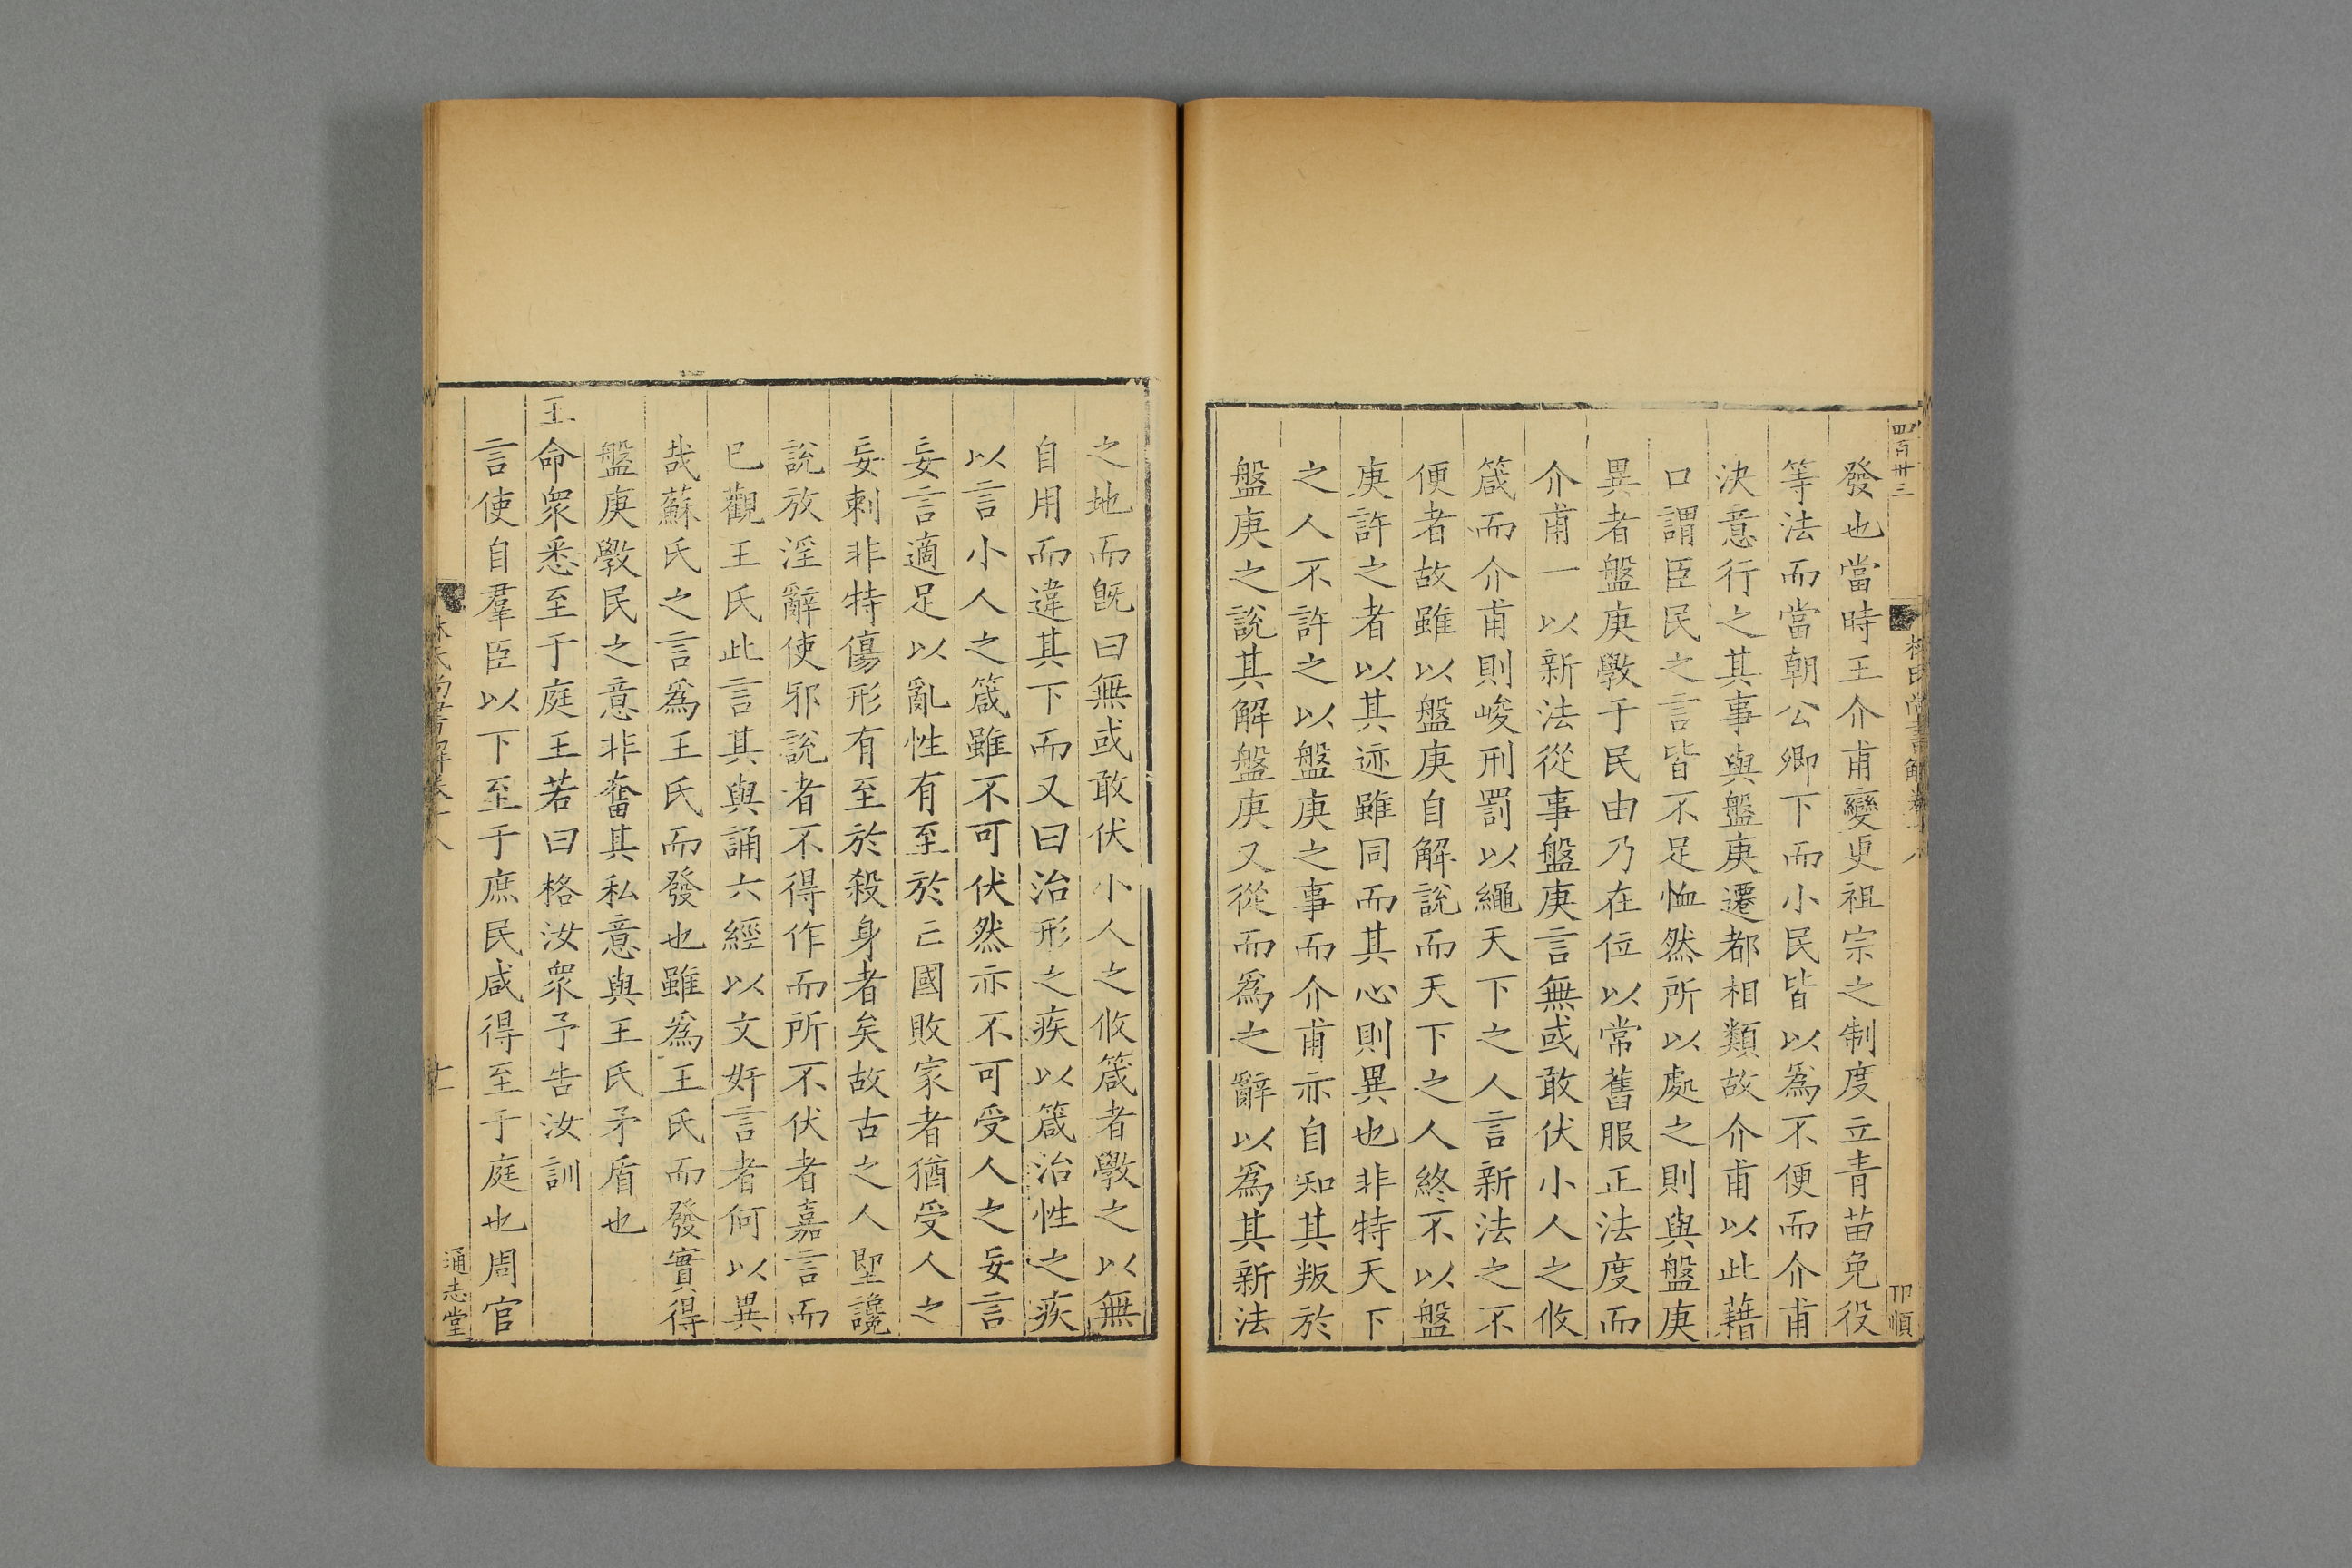 四百卅三
發也當時王介甫變更祖宗之制度立青苗免役
等法而當朝公卿下而小民皆以爲不便而介甫
決意行之其事與盤庚遷都相類故介甫以此藉
口謂臣民之言皆不足恤然所以處之則與盤庚
異者盤庚斆于民由乃在位以常舊服正法度而
介甫一以新法從事盤庚言無或敢伏小人之攸
箴而介甫則峻刑罰以繩天下之人言新法之不
便者故雖以盤庚自解說而天下之人終不以盤
庚許之者以其迹雖同而其心則異也非特天下
之人不許之以盤庚之事而介甫亦自知其叛於
盤庚之說其解盤庚又從而爲之辭以爲其新法
之地而旣曰無或敢伏小人之攸箴者斆之以無
自用而違其下而又曰治形之疾以箴治性之疾
以言小人之箴雖不可伏然亦不可受人之妄言
妄言適足以亂性有至於亡國敗家者猶受人之
妄刺非特傷形有至於殺身者矣故古之人堲讒
說放淫辭使邪說者不得作而所不伏者嘉言而
已觀王氏此言其與誦六經以文奸言者何以異
哉蘇氏之言爲王氏而發也雖爲王氏而發實得
盤庚斆民之意非奮其私意與王氏矛盾也
王命衆悉至于庭王若曰格汝衆予告汝訓
言使自羣臣以下至于庶民咸得至于庭也周官
林氏尚書解卷十八
通志堂